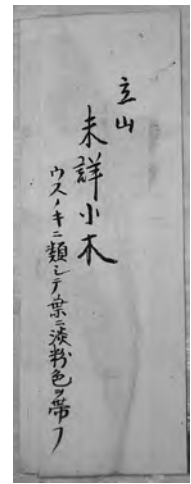 立山
未詳小木
ウスノキニ類シテ葉ニ淡粉色ヲ帯フ